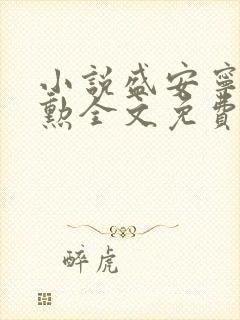 小說盛安寧
勲全文免費
醉虎